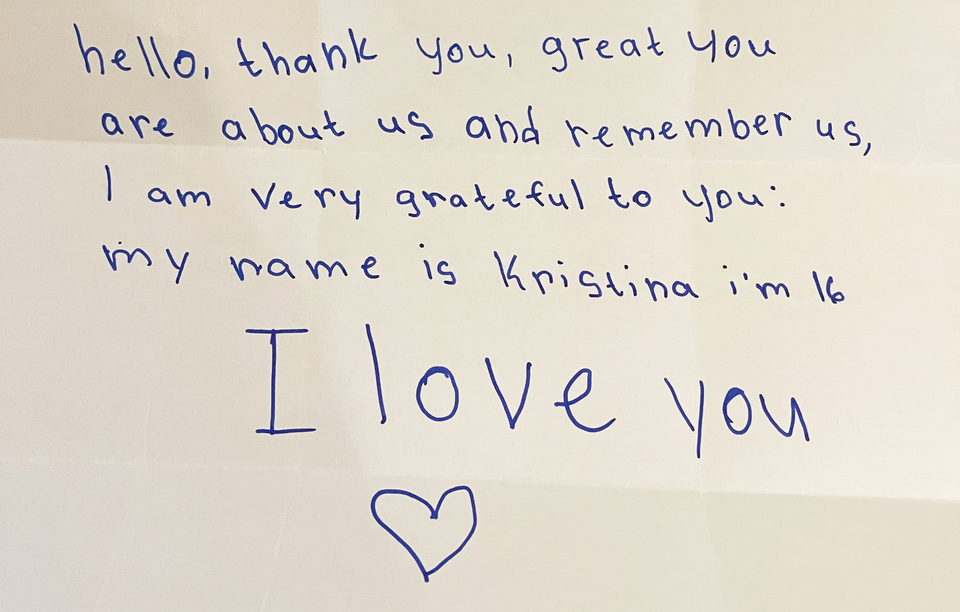 hello, thank you, great you
are about us and remember us,
I am very grateful to you:
my name is Kristina i'm 16
I love you